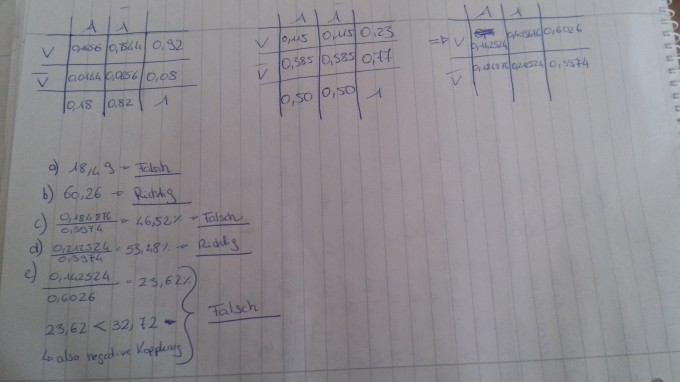 1 1
V 0,1656 0,7544 0,92
V 0,0144 0,0656 0,08
0,18 0,82 1
1 1
V 0,115 0,115 0,23
V 0,385 0,385 0,77
0,50 0,50 1
1 1
=> V 0,142524 0,6026
V 0,5974
a) 18,49 → Falsch
b) 60,26 → Richtig
c) 0,184876 / 0,3974 = 46,52% → Falsch
d) 0,212524 / 0,3974 = 53,48% → Richtig
e) 0,142524 / 0,6026 = 23,62%
23,62 < 32,72
↳ also negative Kopplung
Falsch